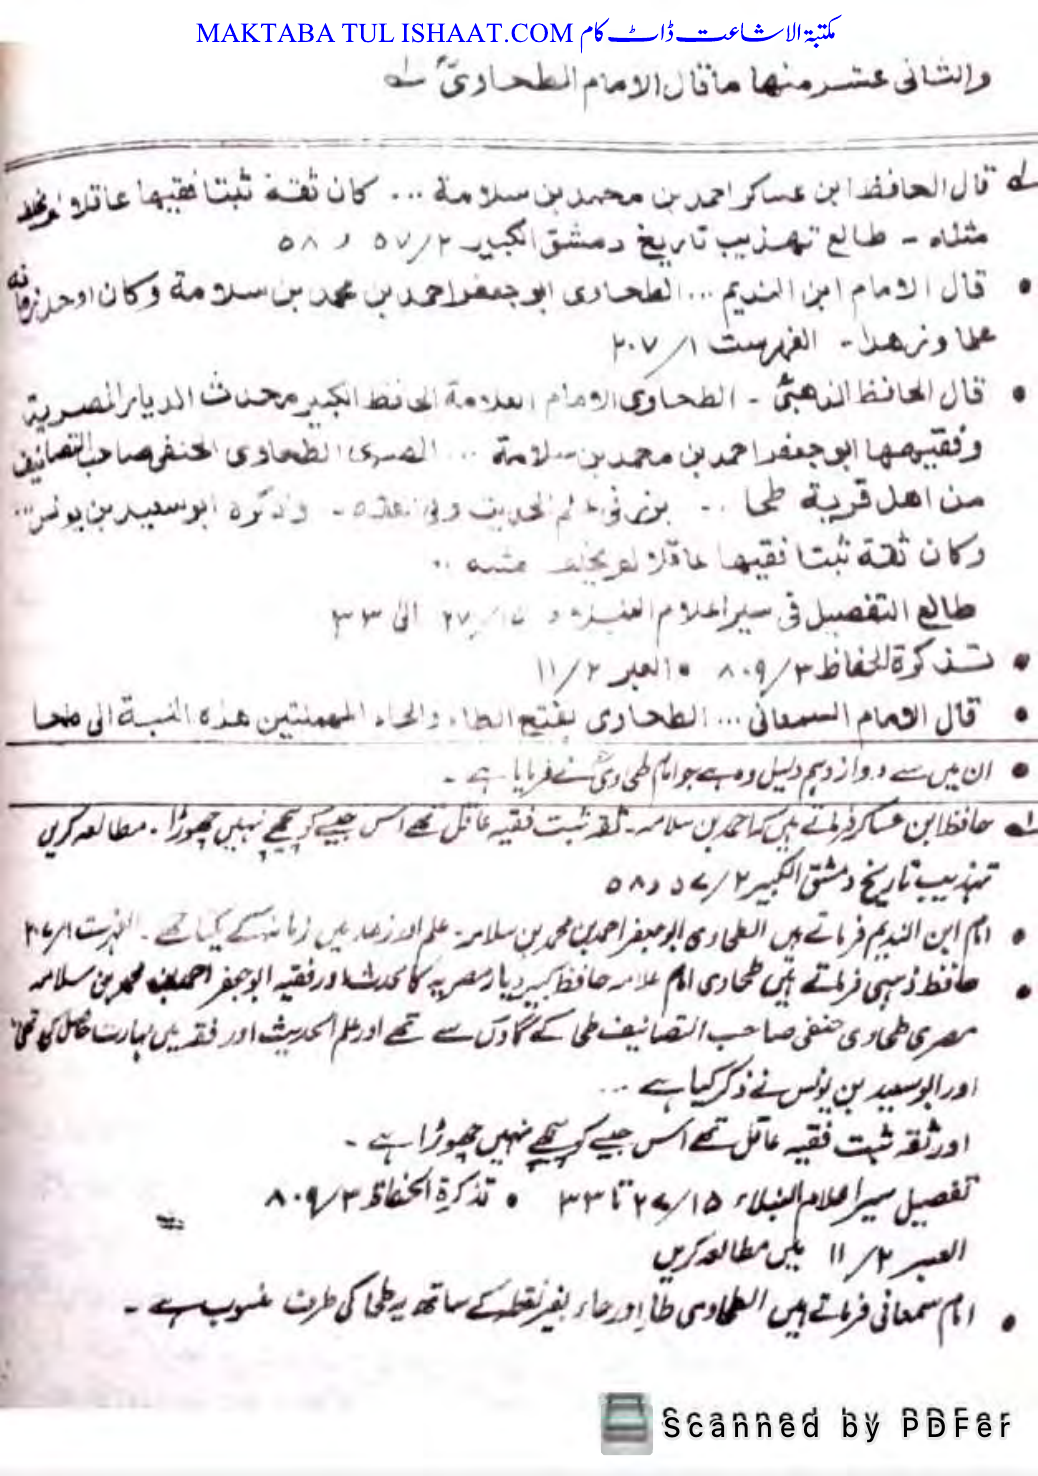 MAKTABA TUL ISHAAT.COM مکتبۃ الاشاعت ڈاٹ کام
والثانی عشر منها ما قال الامام الطحاویؒ لـه
لـه قال الحافظ ابن عساکر احمد بن محمد بن سلامة ... کان ثقة ثبتا فقیها عاقلا لم یخلف
مثله - طالع تهذیب تاریخ دمشق الکبیر ٢/٥٧ و ٥٨
• قال الامام ابن الندیم ... الطحاوی ابو جعفر احمد بن محمد بن سلامة وکان اوحد زمانه
علما وزهدا - الفهرست ١/٢٠٧
• قال الحافظ الذهبیؒ - الطحاوی الامام العلامة الحافظ الکبیر محدث الدیار المصریة
وفقیهها ابو جعفر احمد بن محمد بن سلامة ... المصری الطحاوی الحنفی صاحب التصانیف
من اهل قریة طحا .. برز فی علم الحدیث وفی الفقه - وذکره ابو سعید بن یونس ...
وکان ثقة ثبتا فقیها عاقلا لم یخلف مثله ..
طالع التفصیل فی سیر اعلام النبلاء ١٥/٢٧ الی ٣٣
• تذکرة الحفاظ ٣/٨٠٩ • العبر ٢/١١
• قال الامام السمعانی ... الطحاوی بفتح الطاء والحاء المهملتین هذه النسبة الی طحا
• ان میں سے دوازدہم دلیل وہ ہے جو امام طحاویؒ نے فرمایا ہے -
لـه حافظ ابن عساکر فرماتے ہیں کہ احمد بن سلامہ - ثقہ ثبت فقیہ عاقل تھے اس جیسے کو پیچھے نہیں چھوڑا - مطالعہ کریں
تہذیب تاریخ دمشق الکبیر ٢/٥٧ و ٥٨
• امام ابن الندیم فرماتے ہیں الطحاوی ابو جعفر احمد بن محمد بن سلامہ - علم اور زھد میں زمانہ کے یکتا تھے - الفہرست ١/٢٠٧
• حافظ ذہبی فرماتے ہیں طحاوی امام علامہ حافظ کبیر دیار مصریہ کا محدث اور فقیہ ابو جعفر احمد بن محمد بن سلامہ
مصری طحاوی حنفی صاحب التصانیف طحا کے گاؤں سے تھے اور علم الحدیث اور فقہ میں مہارت حاصل کی تھی
اور ابو سعید بن یونس نے ذکر کیا ہے ...
اور ثقہ ثبت فقیہ عاقل تھے اس جیسے کو پیچھے نہیں چھوڑا ہے -
تفصیل سیر اعلام النبلاء ١٥/٢٧ تا ٣٣ • تذکرة الحفاظ ٣/٨٠٩
العبر ٢/١١ میں مطالعہ کریں
• امام سمعانی فرماتے ہیں الطحاوی طا اور حاء بغیر نقطہ کے ساتھ یہ طحا کی طرف منسوب ہے -
Scanned by PDFer